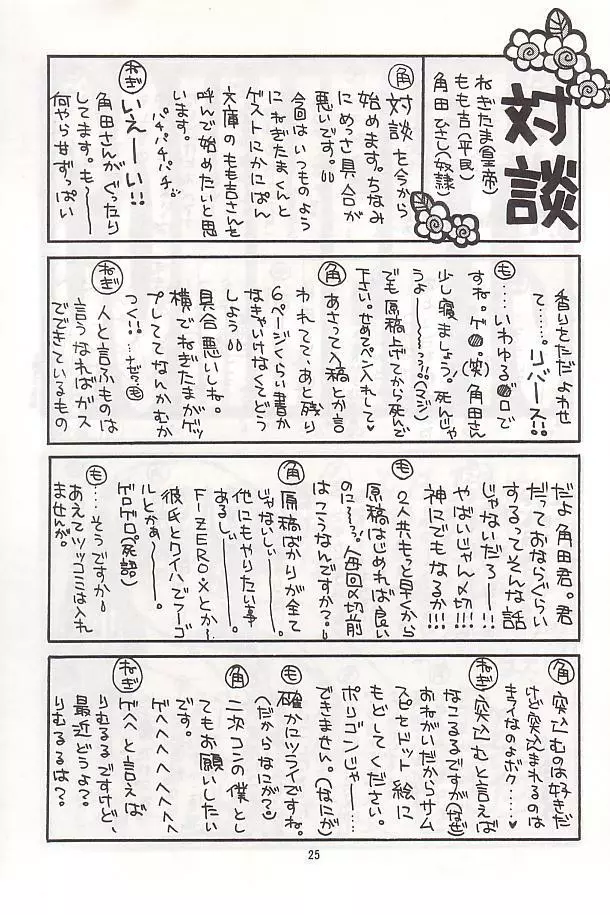 対談
ねぎたま(皇帝)
もも吉(平民)
角田ひさし(奴隷)
角 対談を今から
始めます。ちなみ
にめっさ具合が
悪いです。
今回はいつものよう
にねぎたまくんと
ゲストにかにぱん
文庫のもも吉さんを
呼んで始めたいと思
います。
パチパチパチ。
ねぎ いえーい!!
角田さんがぐったり
してます。も〜
何やらせずっぱい
香りをただよわせ
て……。リバース!!
も ……いわゆる●ロで
すね。ゲ●。(笑)角田さん
少し寝ましょう!死んじゃ
うよ———っっ!!(マジ)
でも原稿上げてから死んで
下さい。せめてペン入れして♥
角 あさって入稿とか言
われてて、あと残り
6ページくらい書か
なきゃいけなくてどう
しよう
具合悪いしね。
横でねぎたまがゲッ
プしててなんかむか
つく!!…なぜっも
ねぎ 人と言ふものは
言うなればガス
でできているもの
だよ角田君。君
だっておならぐらい
するってそんな話
じゃないだろ——!!
やばいじゃん〆切!!!
神にでもなるか!!!
も 2人共もっと早くから
原稿はじめれば良い
のに〜っっ!人毎回〆切前
はこうなんですか?
角 原稿ばかりが全て
じゃないしぃ———。
他にもやりたい事
あるしぃ———。
F-ZERO・Xとか〜
彼氏とワイハでフーゴ
ルとかぁ———。
ゲロゲロ(死語)
も ……そうですか
あえてツッコミは入れ
ませんが。
角 突込むのは好きだ
けど突込まれるのは
キライなのよボク……♥
ねぎ 突込むと言えば
なこるるですが(なぜ)
おねがいだからサム
スピをドット絵に
もどしてください。
ポリゴンじゃ———……
できません。(なにが)
も 確かにツライですね。
(だからなにが?)
角 二次コンの僕とし
てもお願いしたい
です。
ゲヘヘヘヘヘヘヘ
ねぎ ゲヘヘと言えば
りむるるですけど、
最近どうよ?。
りむるるは?。
25